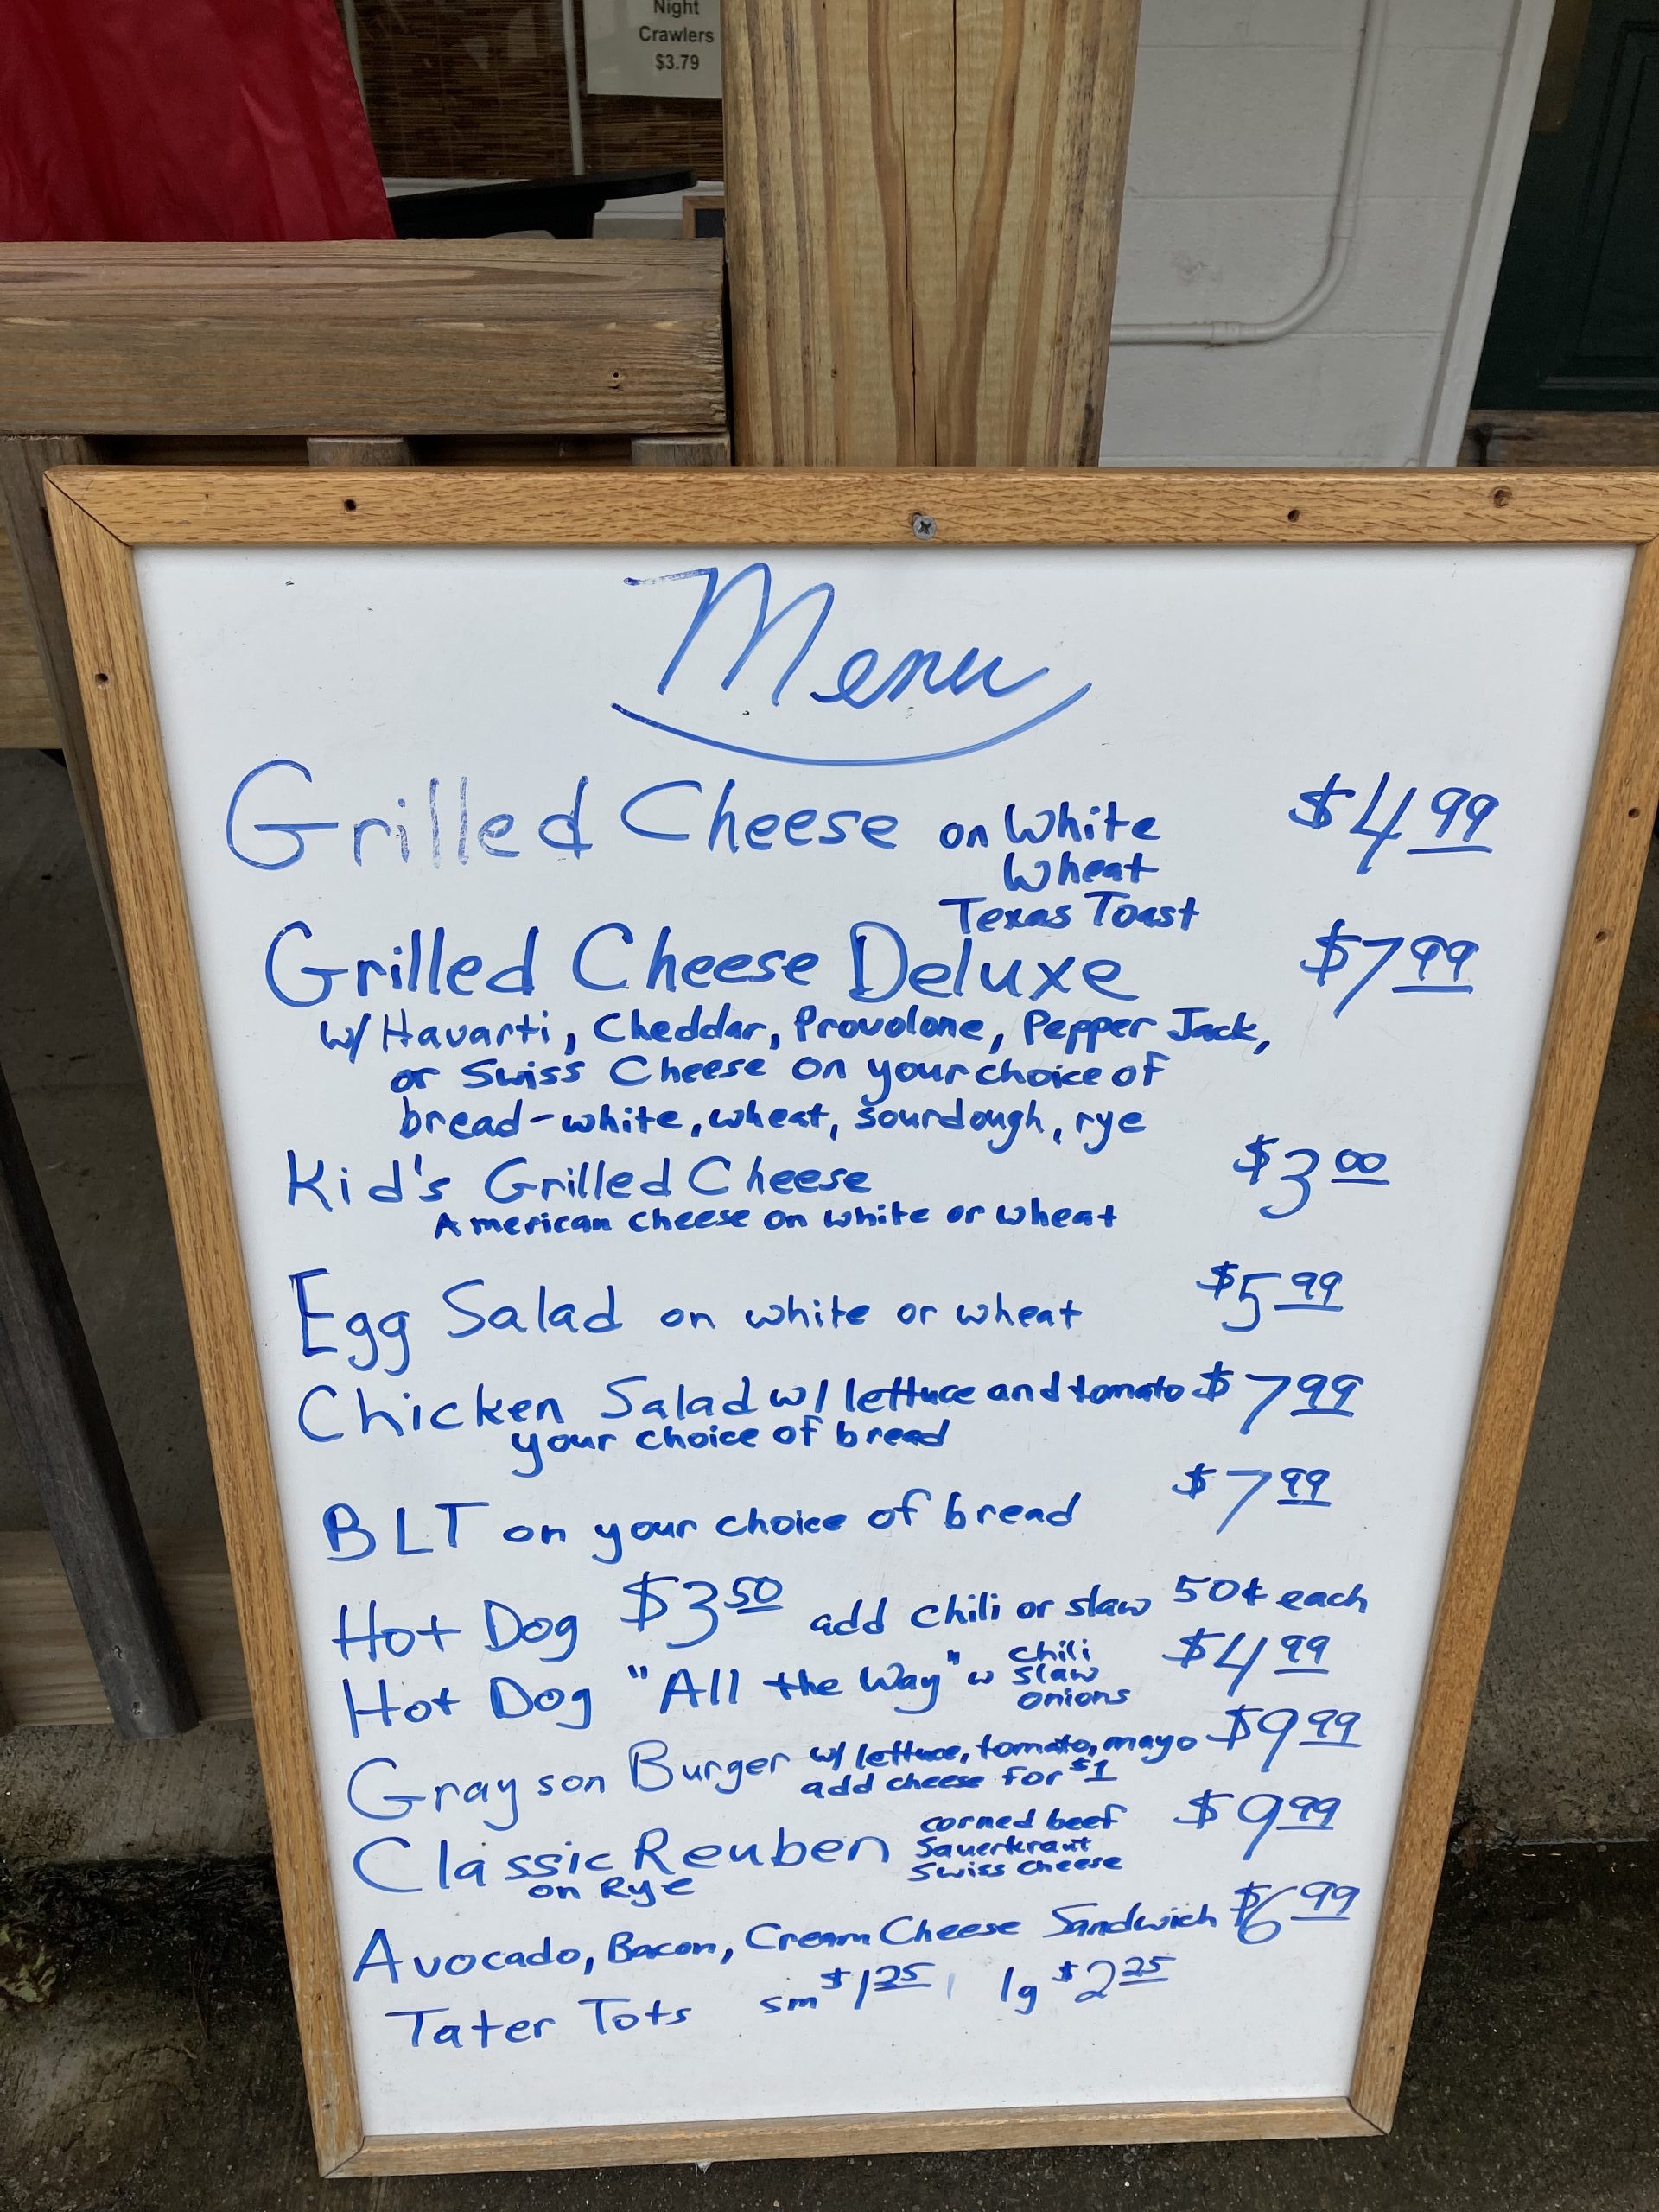 Night
Crawlers
$3.79
Menu
Grilled Cheese on White $4.99
Wheat
Texas Toast
Grilled Cheese Deluxe $7.99
w/ Havarti, Cheddar, Provolone, Pepper Jack,
or Swiss Cheese on your choice of
bread-white, wheat, sourdough, rye
Kid's Grilled Cheese $3.00
American cheese on white or wheat
Egg Salad on white or wheat $5.99
Chicken Salad w/ lettuce and tomato $7.99
your choice of bread
BLT on your choice of bread $7.99
Hot Dog $3.50 add chili or slaw 50¢ each
Hot Dog "All the Way" w chili $4.99
slaw
onions
Grayson Burger w/ lettuce, tomato, mayo $9.99
add cheese for $1
Classic Reuben corned beef $9.99
Sauerkraut
Swiss cheese
on Rye
Avocado, Bacon, Cream Cheese Sandwich $6.99
Tater Tots sm $1.25 lg $2.25